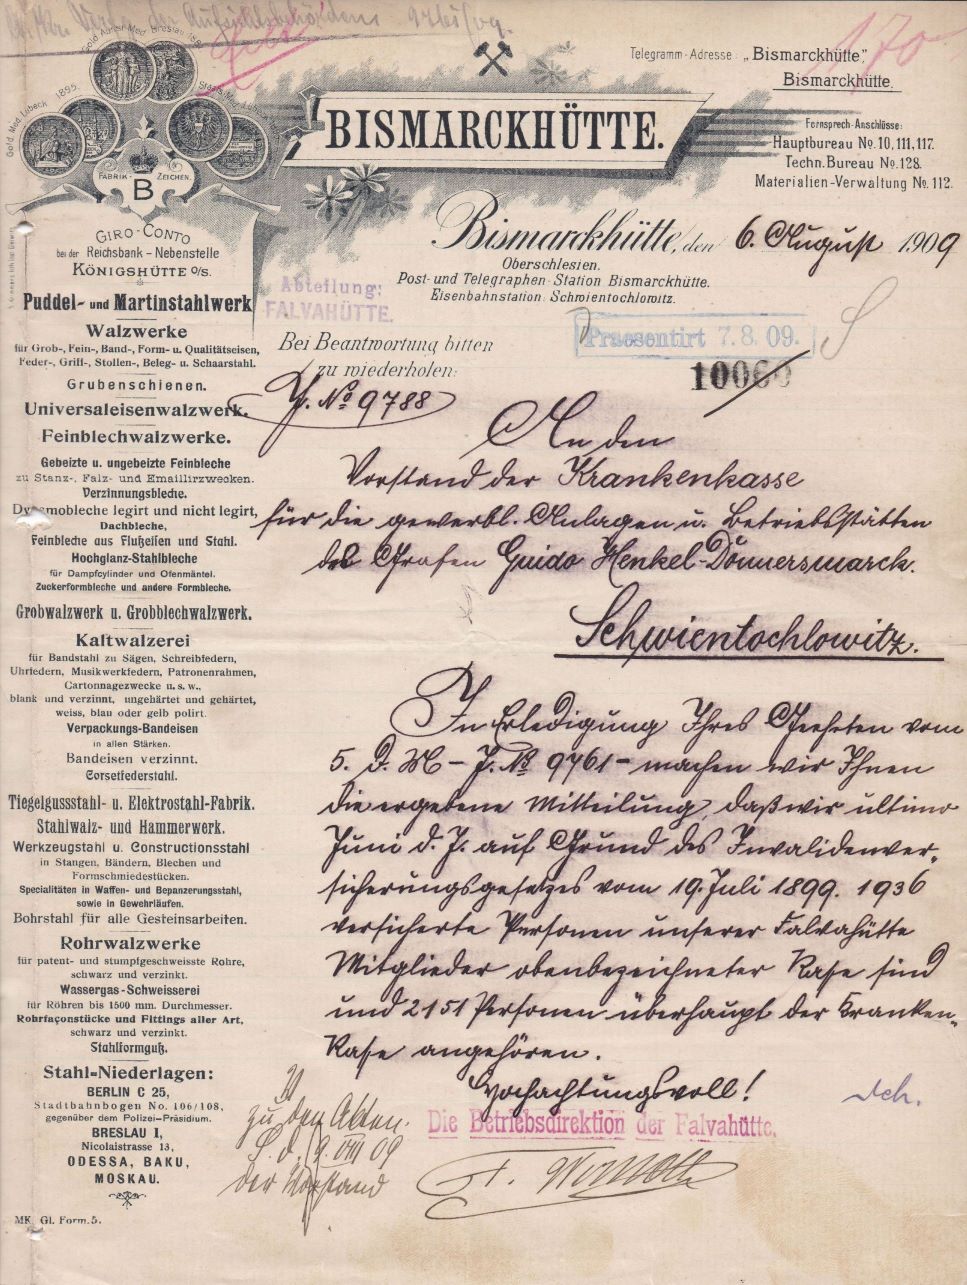 Gold. Med. Lübeck 1895.
FABRIK- ZEICHEN.
B
BISMARCKHÜTTE.
Telegramm-Adresse: „Bismarckhütte",
Bismarckhütte.
170
Fernsprech-Anschlüsse:
Hauptbureau No. 10, 111, 117.
Techn. Bureau No. 128.
Materialien-Verwaltung No. 112.
Bismarckhütte, den 6. August 1909
Oberschlesien.
Post- und Telegraphen-Station Bismarckhütte.
Eisenbahnstation: Schwientochlowitz.
GIRO-CONTO
bei der Reichsbank-Nebenstelle
KÖNIGSHÜTTE O/S.
Puddel- und Martinstahlwerk
Walzwerke
für Grob-, Fein-, Band-, Form- u. Qualitätseisen,
Feder-, Griff-, Stollen-, Beleg- u. Schaarstahl.
Grubenschienen.
Universaleisenwalzwerk.
Feinblechwalzwerke.
Gebeizte u. ungebeizte Feinbleche
zu Stanz-, Falz- und Emaillirzwecken.
Verzinnungsbleche.
Dynamobleche legirt und nicht legirt,
Dachbleche,
Feinbleche aus Flußeisen und Stahl.
Hochglanz-Stahlbleche
für Dampfcylinder und Ofenmäntel.
Zuckerformbleche und andere Formbleche.
Grobwalzwerk u. Grobblechwalzwerk.
Kaltwalzerei
für Bandstahl zu Sägen, Schreibfedern,
Uhrfedern, Musikwerkfedern, Patronenrahmen,
Cartonnagezwecke u. s. w.,
blank und verzinnt, ungehärtet und gehärtet,
weiss, blau oder gelb polirt.
Verpackungs-Bandeisen
in allen Stärken.
Bandeisen verzinnt.
Corsetfederstahl.
Tiegelgussstahl- u. Elektrostahl-Fabrik.
Stahlwalz- und Hammerwerk.
Werkzeugstahl u. Constructionsstahl
in Stangen, Bändern, Blechen und
Formschmiedestücken.
Specialitäten in Waffen- und Bepanzerungsstahl,
sowie in Gewehrläufen.
Bohrstahl für alle Gesteinsarbeiten.
Rohrwalzwerke
für patent- und stumpfgeschweisste Rohre,
schwarz und verzinkt.
Wassergas-Schweisserei
für Röhren bis 1500 mm. Durchmesser.
Rohrfaçonstücke und Fittings aller Art,
schwarz und verzinkt.
Stahlformguß.
Stahl-Niederlagen:
BERLIN C 25,
Stadtbahnbogen No. 106/108,
gegenüber dem Polizei-Präsidium.
BRESLAU I,
Nicolaistrasse 13,
ODESSA, BAKU,
MOSKAU.
MK. Gl. Form. 5.
Abteilung:
FALVAHÜTTE.
Praesentirt 7.8.09.
10060
Bei Beantwortung bitten
zu wiederholen:
J. No 9788
An den
Vorstand der Krankenkasse
für die gewerbl. Anlagen u. Betriebsstätten
des Grafen Guido Henkel-Donnersmarck.
Schwientochlowitz.
In Erledigung Ihres Geehrten vom
5. d. M - J. No 9761 - machen wir Ihnen
die ergebene Mitteilung, daß wir ultimo
Juni d. J. auf Grund des Invalidenver-
sicherungsgesetzes vom 19. Juli 1899. 1936
versicherte Personen unserer Falvahütte
Mitglieder obenbezeichneter Kasse sind
und 2151 Personen überhaupt der Kranken-
Kasse angehören.
Hochachtungsvoll!
Die Betriebsdirektion der Falvahütte.
zu den Akten.
S. d. 9. VIII 09
der Vorstand